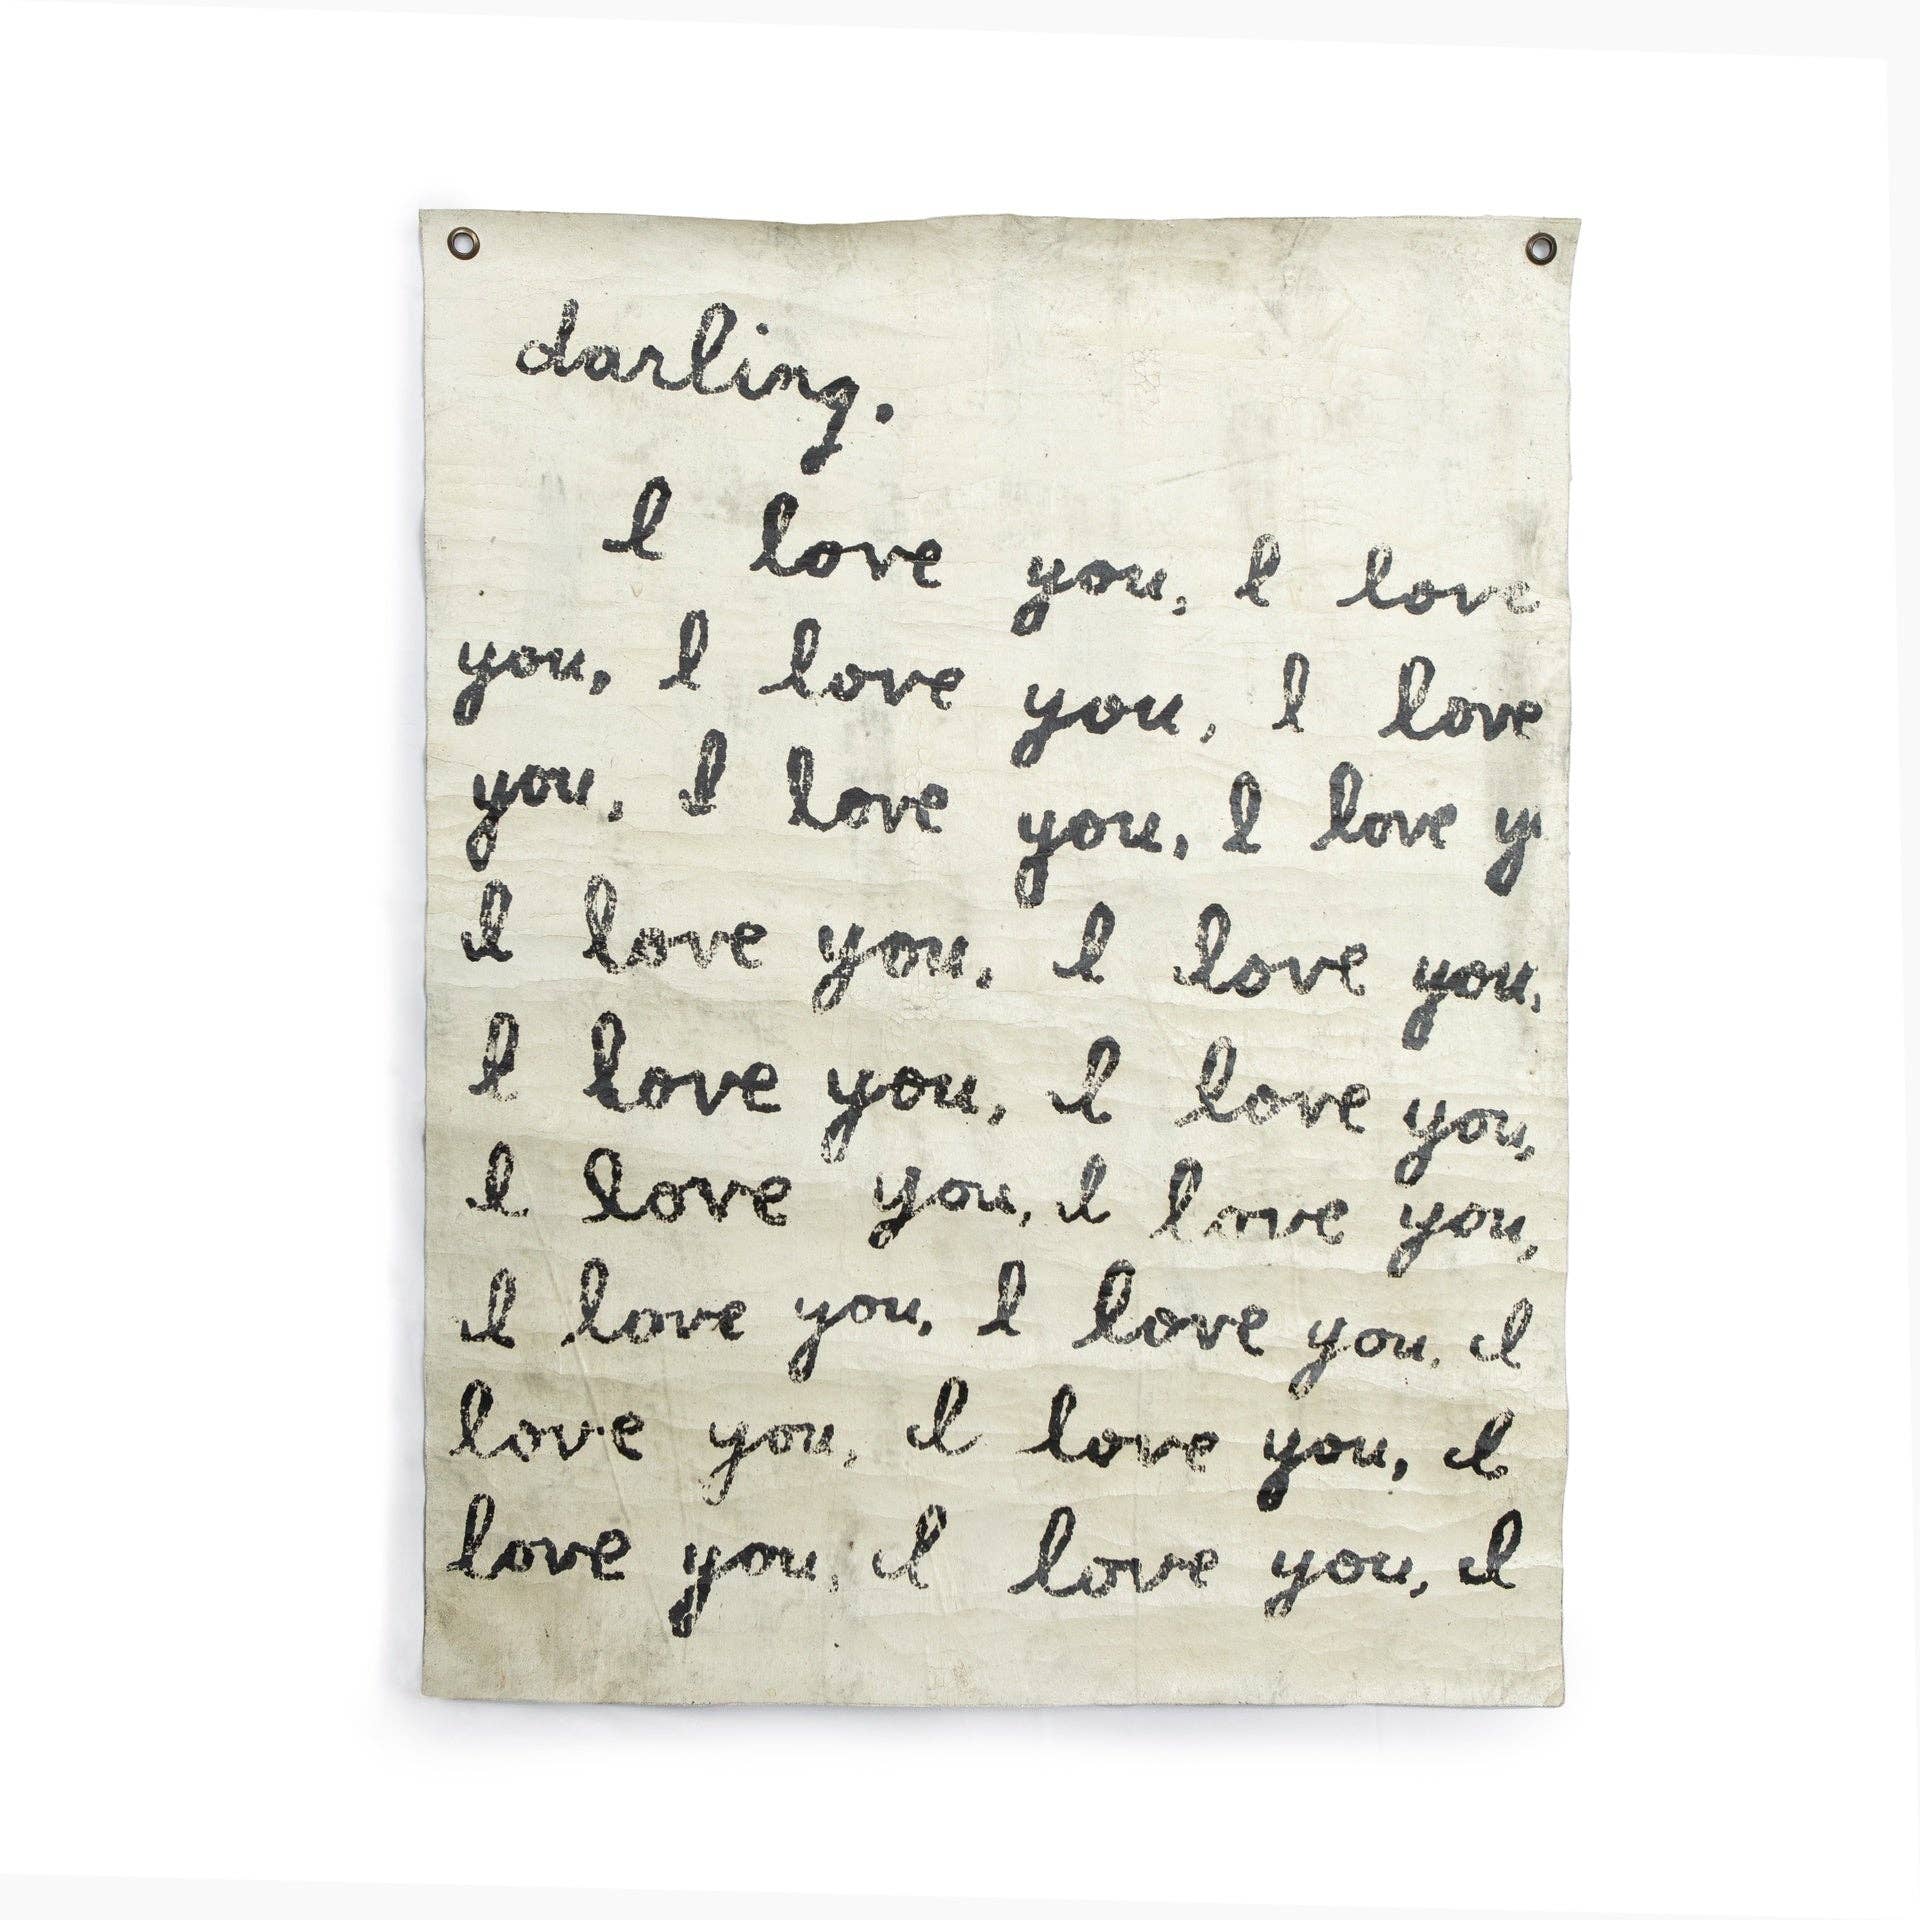 darling.
I love you, I love
you, I love you, I love
you, I love you, I love y
I love you, I love you,
I love you, I love you,
I love you, I love you,
I love you, I love you, I
love you, I love you, I
love you, I love you, I